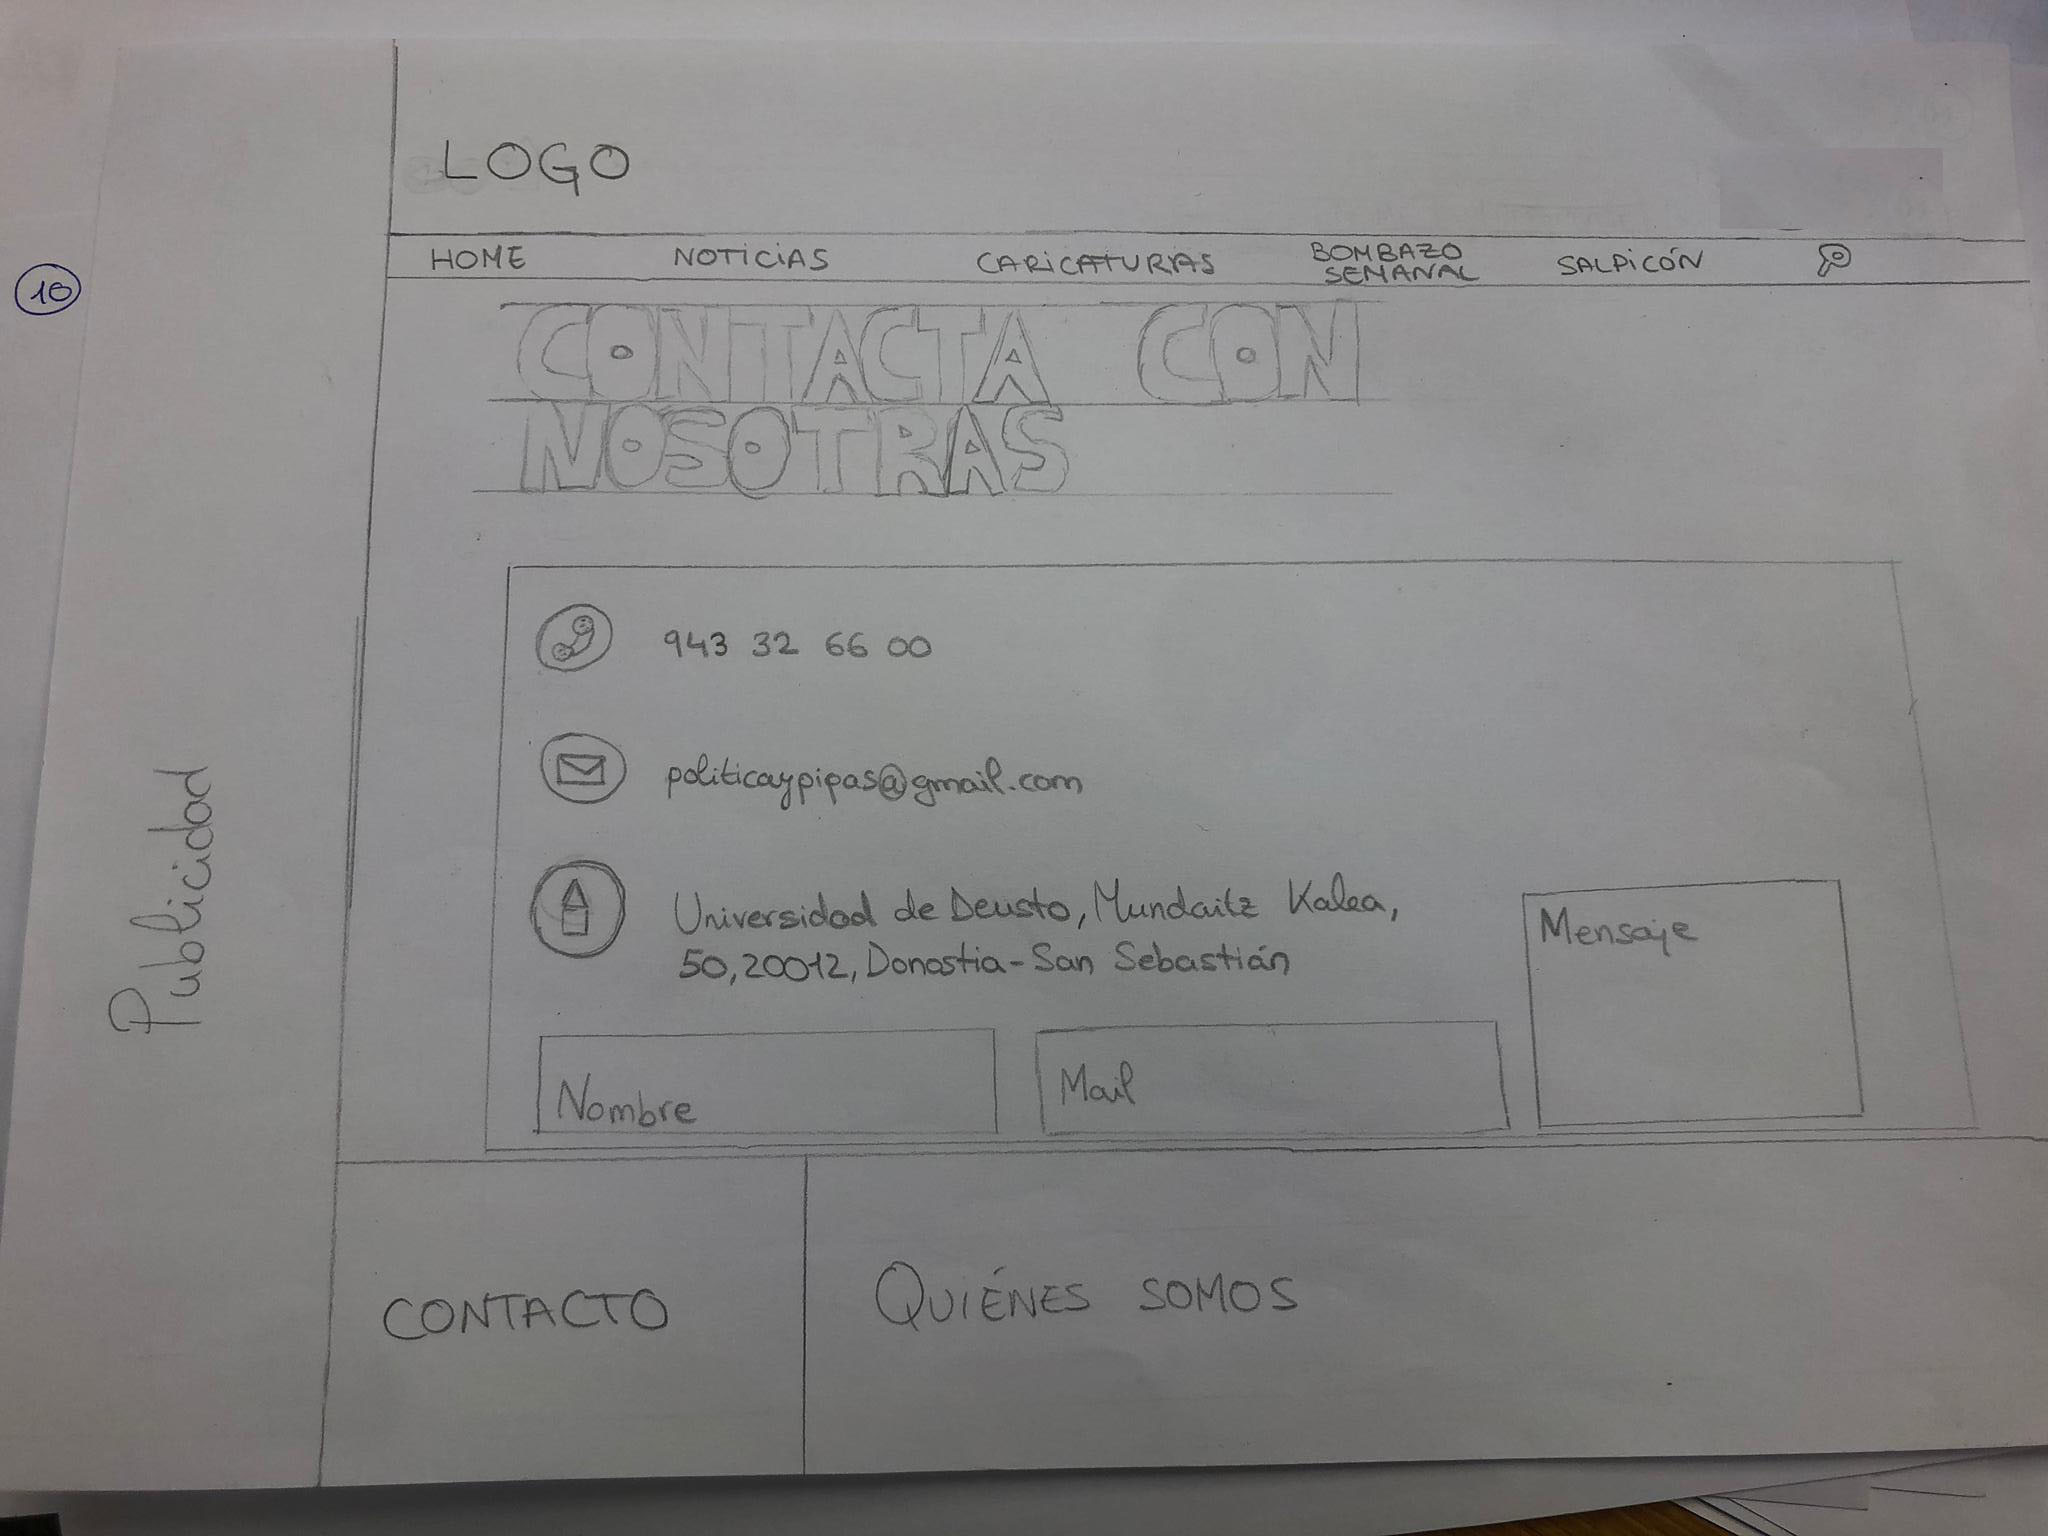 LOGO
HOME NOTICIAS CARICATURAS BOMBAZO SEMANAL SALPICÓN
10
CONTACTA CON
NOSOTRAS
943 32 66 00
politicaypipas@gmail.com
Universidad de Deusto, Mundaitz Kalea,
50, 20012, Donostia-San Sebastián
Mensaje
Nombre
Mail
Publicidad
CONTACTO
QUIÉNES SOMOS